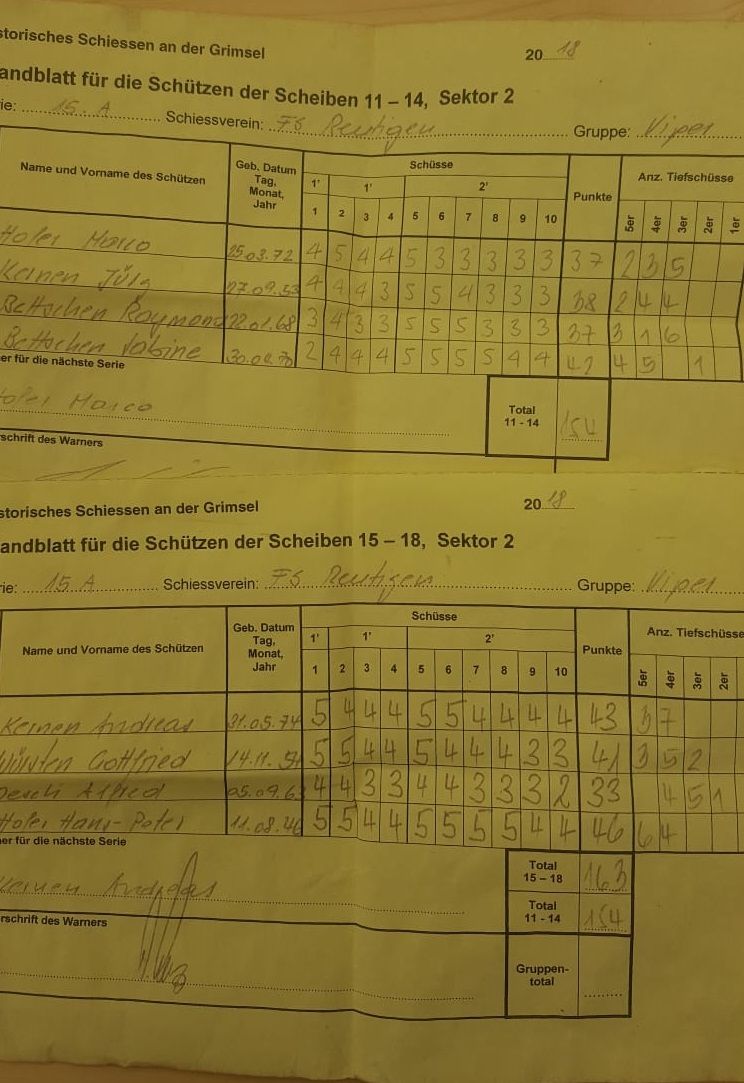 storisches Schiessen an der Grimsel 20 18
andblatt für die Schützen der Scheiben 11 – 14, Sektor 2
rie: 15. A Schiessverein: FS Reutigen Gruppe: Viper
Name und Vorname des Schützen Geb. Datum Tag, Monat, Jahr Schüsse Punkte Anz. Tiefschüsse
1' 1' 2'
1 2 3 4 5 6 7 8 9 10 5er 4er 3er 2er 1er
Hofer Marco 25.03.72 4 5 4 4 5 3 3 3 3 3 37 2 3 5
Keinen Jürg 27.09.53 4 4 4 3 5 5 4 3 3 3 38 2 4 4
Bettschen Raymond 22.01.68 3 4 3 3 5 5 5 3 3 3 37 3 1 6
Bettschen Sabine 2 4 4 4 5 5 5 5 4 4 42 4 5 1
er für die nächste Serie
ofer Marco
Total 11 - 14 154
rschrift des Warners
storisches Schiessen an der Grimsel 20 18
andblatt für die Schützen der Scheiben 15 – 18, Sektor 2
rie: 15 A Schiessverein: FS Reutigen Gruppe: Viper
Name und Vorname des Schützen Geb. Datum Tag, Monat, Jahr Schüsse Punkte Anz. Tiefschüsse
1' 1' 2'
1 2 3 4 5 6 7 8 9 10 5er 4er 3er 2er
Keinen Andreas 31.05.74 5 4 4 4 5 5 4 4 4 4 43 3 7
Gottfried 14.11. 5 5 4 4 5 4 4 4 3 3 41 3 5 2
Alfred 05.09.63 4 4 3 3 4 4 3 3 3 2 33 4 5 1
Hofer Hans-Peter 11.08.46 5 5 4 4 5 5 5 5 4 4 46 6 4
er für die nächste Serie
Keinen Andreas
Total 15 – 18 163
rschrift des Warners
Total 11 - 14 154
Gruppen-total